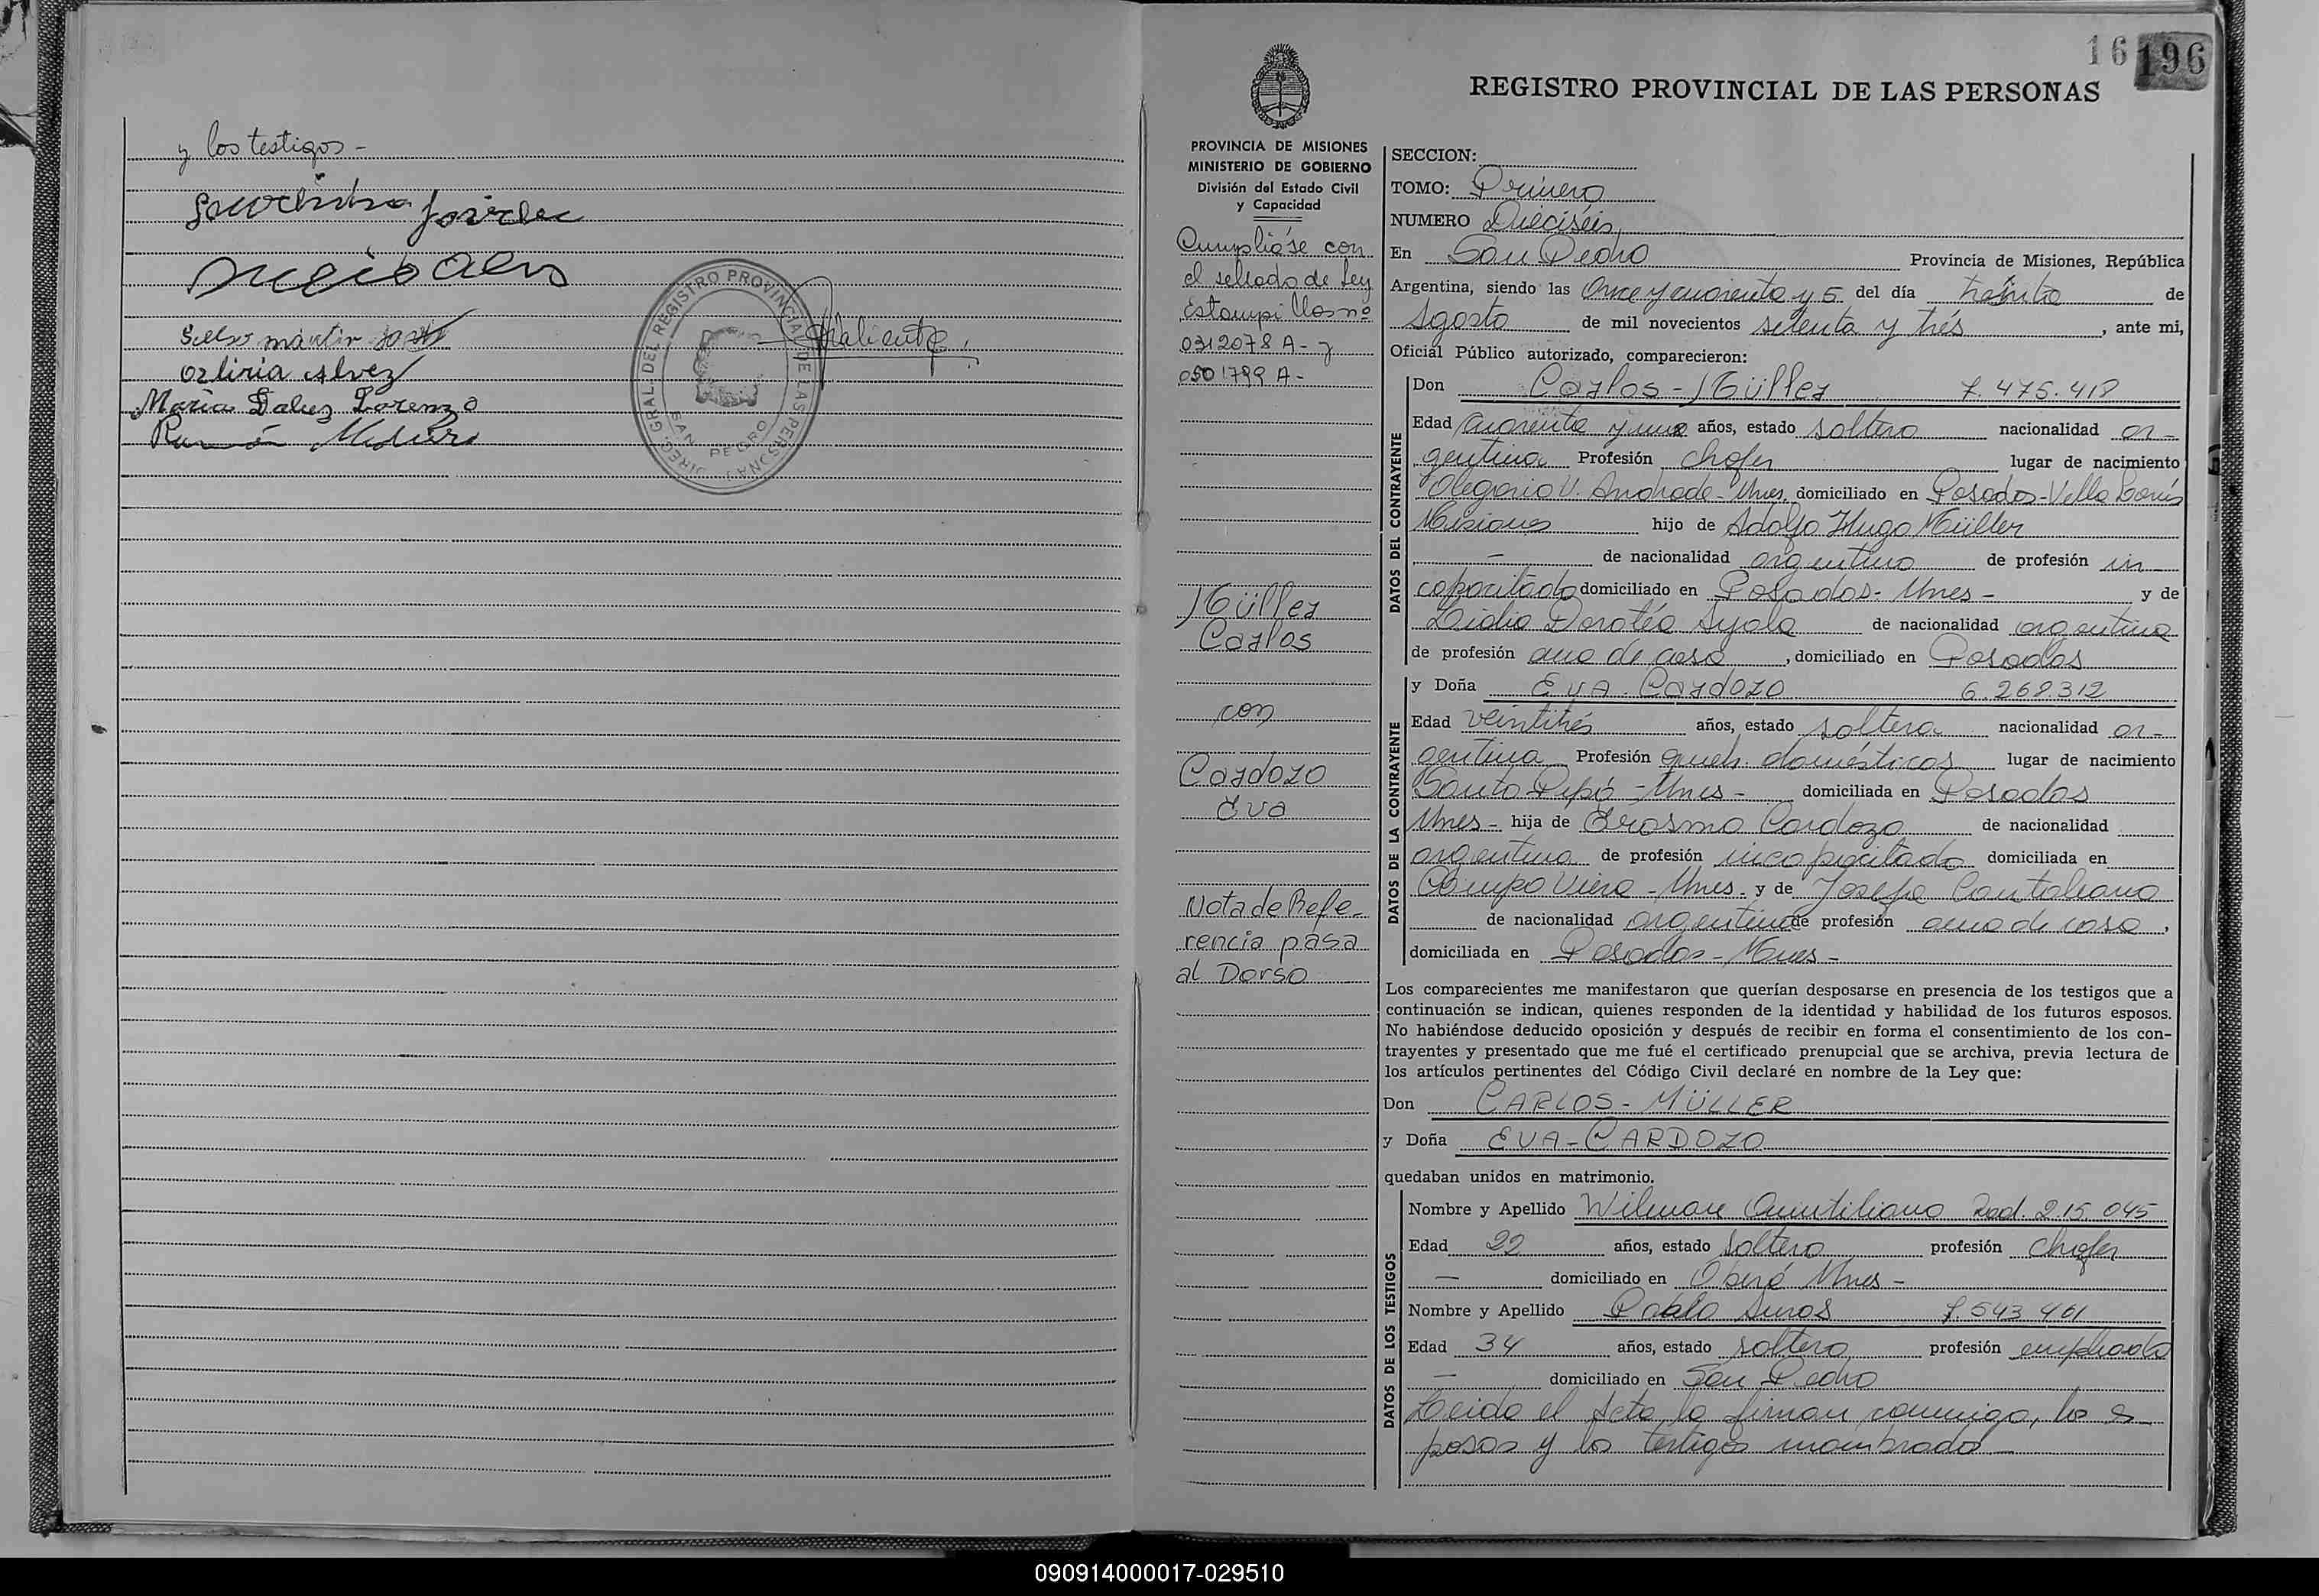 y los testigos -
Ortiria Alvez
Maria Daluz Lorenzo
DIREC. GRAL. DEL REGISTRO PROVINCIAL DE LAS PERSONAS
SAN PEDRO
16 196
REGISTRO PROVINCIAL DE LAS PERSONAS
PROVINCIA DE MISIONES
MINISTERIO DE GOBIERNO
División del Estado Civil
y Capacidad
Cumplióse con
el sellado de Ley
Estampillas nº
0312078 A - y
0501799 A -
Müller
Carlos
con
Cardozo
Eva
Nota de Refe-
rencia pasa
al Dorso
SECCION:
TOMO: Primero
NUMERO Dieciséis
En San Pedro Provincia de Misiones, República
Argentina, siendo las Once y cuarenta y 5 del día treinta de
Agosto de mil novecientos setenta y trés, ante mi,
Oficial Público autorizado, comparecieron:
DATOS DEL CONTRAYENTE
Don Carlos - Müller 7.475.418
Edad Cuarenta y uno años, estado soltero nacionalidad ar-
gentina Profesión chofer lugar de nacimiento
Olegario V. Andrade - Mnes. domiciliado en Posadas - Villa
Misiones hijo de Adolfo Hugo Müller
— de nacionalidad argentino de profesión in-
capacitado domiciliado en Posadas - Mnes - y de
Lidia Dorotéa Ayala de nacionalidad argentina
de profesión ama de casa, domiciliado en Posadas
DATOS DE LA CONTRAYENTE
y Doña Eva Cardozo 6.268.312
Edad veintitrés años, estado soltera nacionalidad ar-
gentina Profesión queh. domésticos lugar de nacimiento
Santo Pipó - Mnes - domiciliada en Posadas
Mnes - hija de Erasmo Cardozo de nacionalidad
argentina de profesión incapacitado domiciliada en
Campo Viera - Mnes - y de Josefa
de nacionalidad argentina de profesión ama de casa,
domiciliada en Posadas - Mnes -
Los comparecientes me manifestaron que querían desposarse en presencia de los testigos que a
continuación se indican, quienes responden de la identidad y habilidad de los futuros esposos.
No habiéndose deducido oposición y después de recibir en forma el consentimiento de los con-
trayentes y presentado que me fué el certificado prenupcial que se archiva, previa lectura de
los artículos pertinentes del Código Civil declaré en nombre de la Ley que:
Don CARLOS - MÜLLER
y Doña EVA - CARDOZO
quedaban unidos en matrimonio.
DATOS DE LOS TESTIGOS
Nombre y Apellido Wilmar Quintiliano 215.045
Edad 22 años, estado soltero profesión chofer
— domiciliado en Oberá Mnes -
Nombre y Apellido Pablo 7.543.461
Edad 34 años, estado soltero profesión empleado
— domiciliado en San Pedro
Leida el Acta, la firman conmigo, los es-
posos y los testigos nombrados -
090914000017-029510